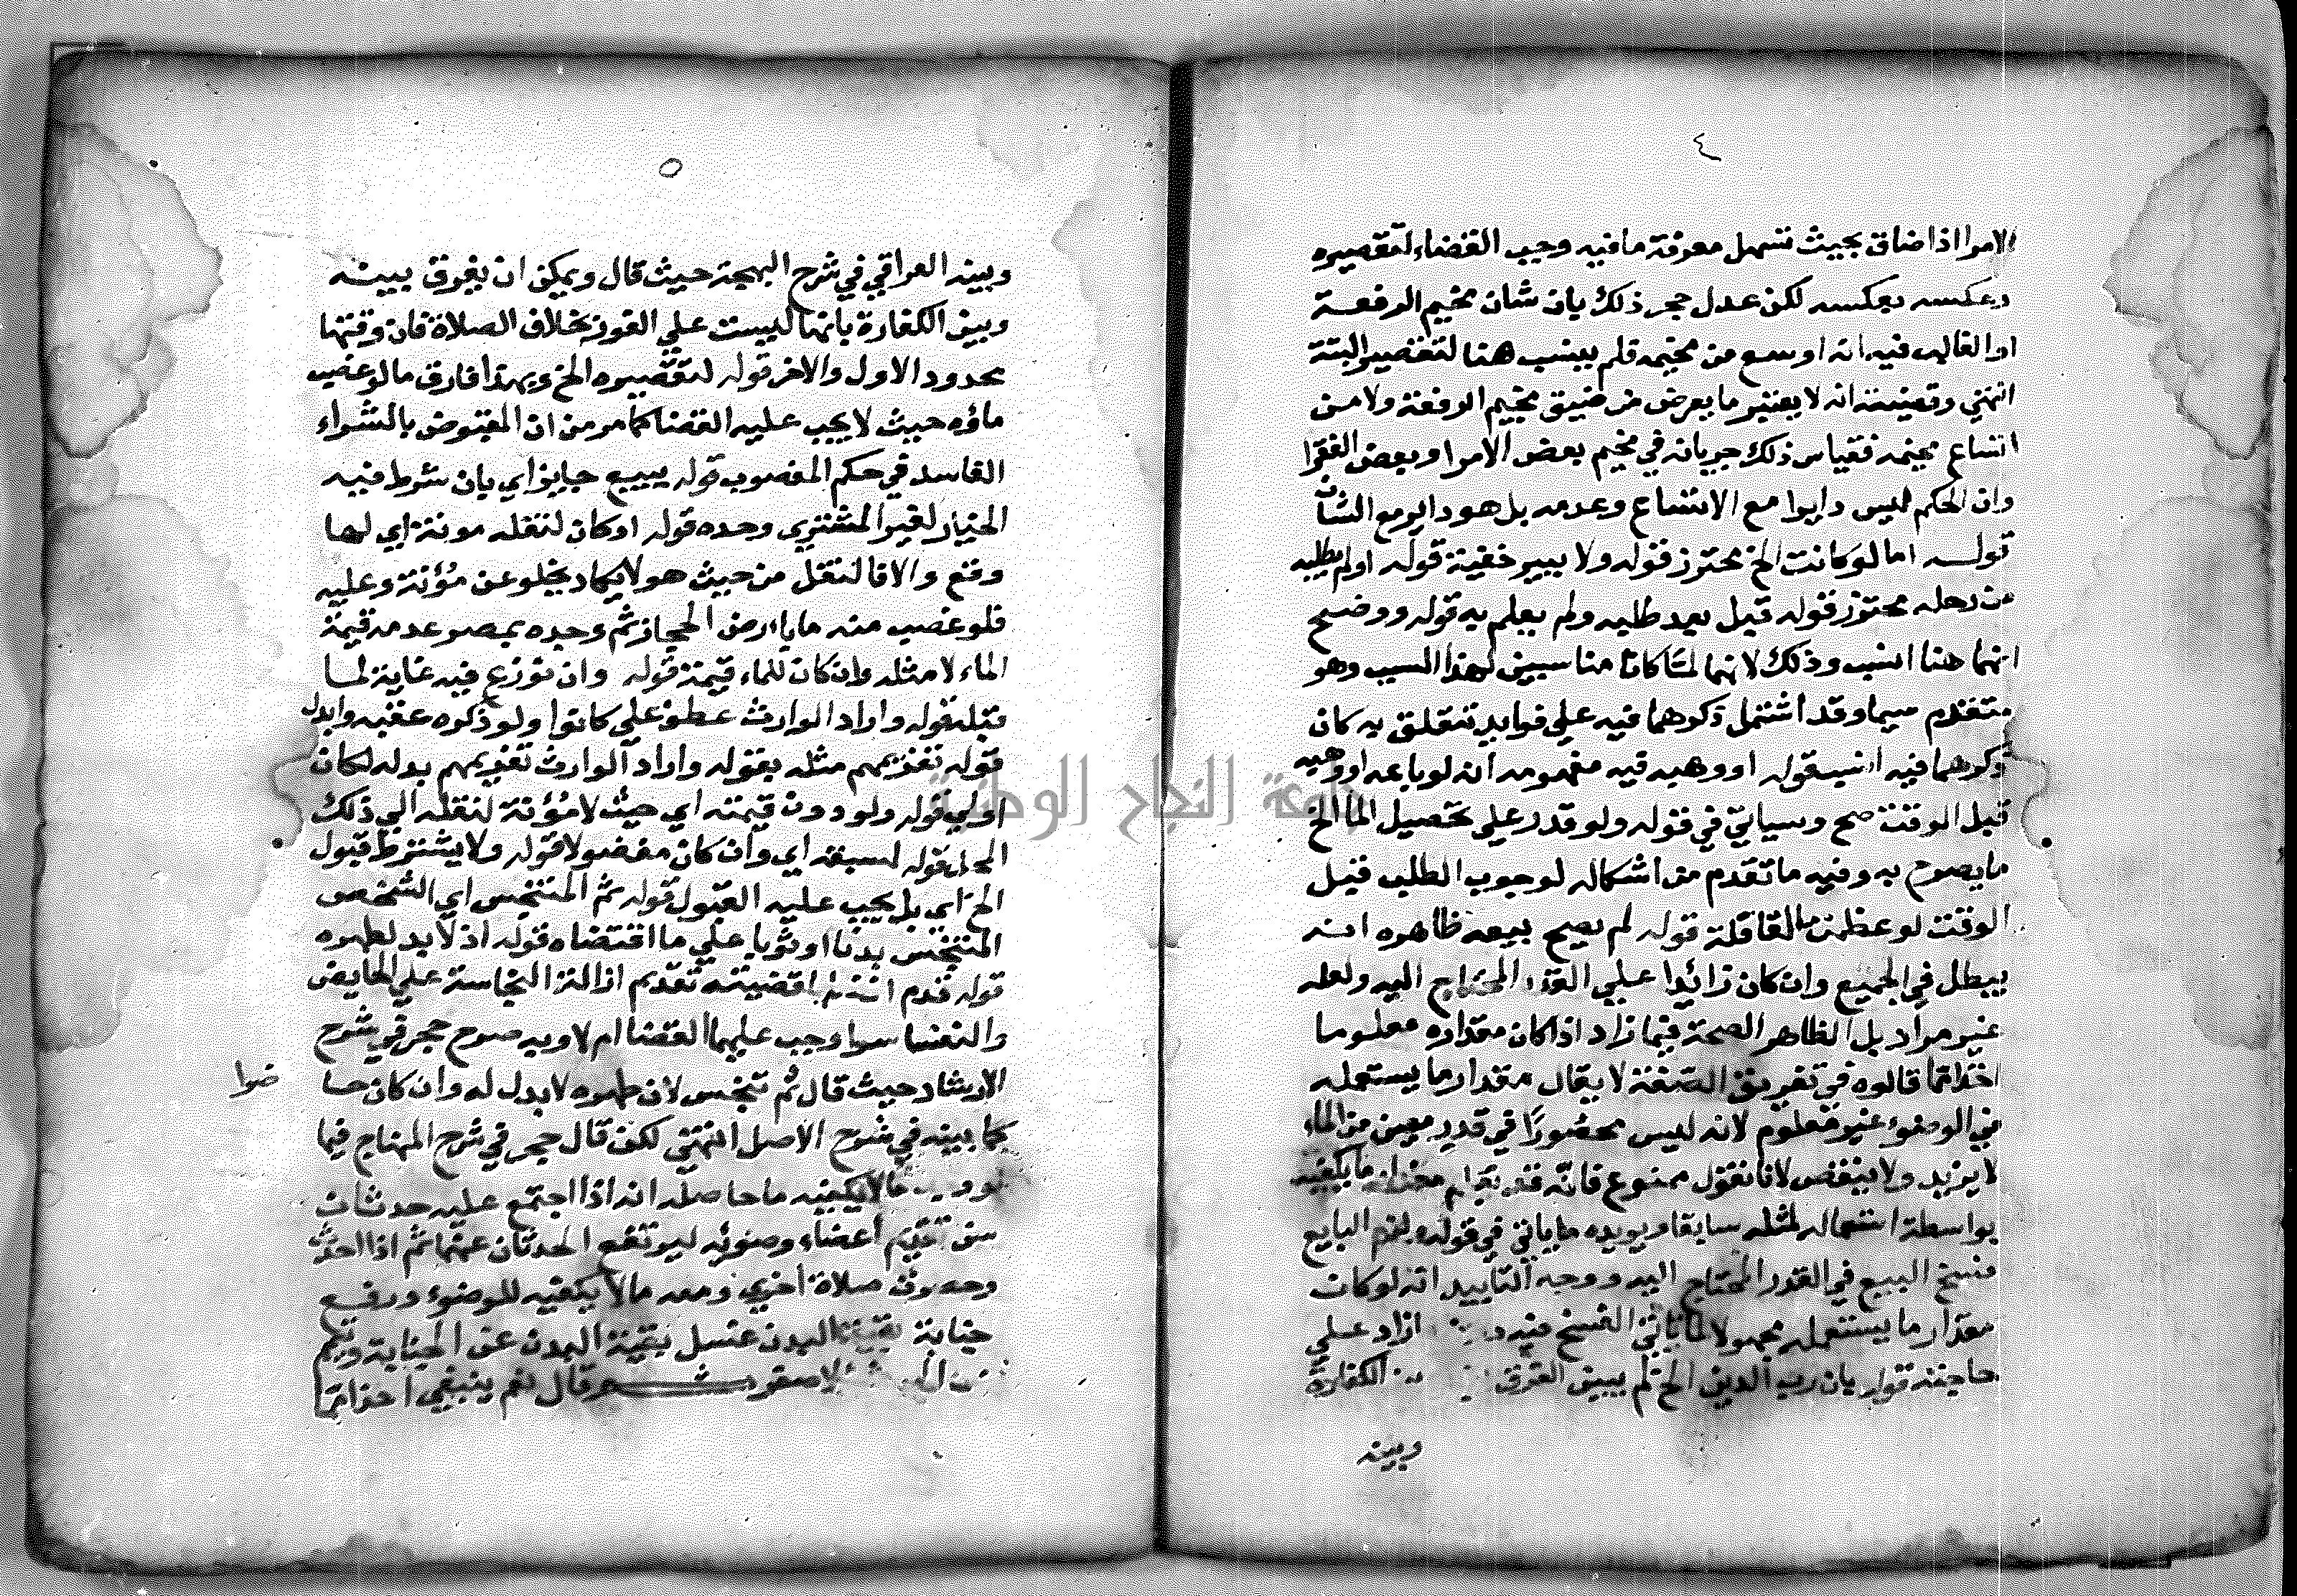 ٤
الامرا اذا ضاق بحيث تسهل معرفة ما فيه وجب القضاء لتقصيره
وعكسه بعكسه لكن عدل حجر ذلك بان شان مخيم الرفقة
او الغالب فيه انه اوسع من مخيمه فلم ينسب هنا لتقصير البتة
انتهى وقضيته انه لا يعتبر ما يعرض من ضيق مخيم الرفقة ولا من
اتساع مخيمه فقياس ذلك جريانه في مخيم بعض الامرا وبعض الفقرا
وان الحكم ليس دايرا مع الاتساع وعدمه بل هو داير مع الشان
قوله اما لو كانت الخ محترز قوله ولا ببير خفية قوله او لم يطلبه
من رحله محترز قوله قبل بعد طلبه ولم يعلم به قوله ووضح
انهما هنا انسب وذلك لانهما لما كانا مناسبين لهذا السبب وهو
متقدم سيما وقد اشتمل ذكرهما فيه على فوايد تتعلق به كان
ذكرهما فيه انسب قوله او وهبه فيه مفهومه انه لو باعه او وهبه
قبل الوقت صح وسياتي في قوله ولو قدر على تحصيل الما الخ
ما يصرح به وفيه ما تقدم من اشكاله لوجوب الطلب قبل
الوقت لو عظمت القافلة قوله لم يصح بيعه ظاهره انه
يبطل في الجميع وان كان زائدا على القدر المحتاج اليه ولعله
غير مراد بل الظاهر الصحة فيما زاد اذا كان مقداره معلوما
اخذا مما قالوه في تفريق الصفقة لا يقال مقدار ما يستعمله
في الوضوء غير معلوم لانه ليس محصورا في قدر معين من الماء
لا يزيد ولا ينقص لانا نقول ممنوع فانه قد يعلم مقدار ما يكفيه
بواسطة استعماله لمثله سابقا ويويده ما ياتي في قوله لزم البايع
فسخ البيع في القدر المحتاج اليه ووجه التاييد انه لو كان
مقدار ما يستعمله مجهولا لما تاتى الفسخ فيه ازاد على
حاجته قوله بان رب الدين الخ لم يبين الفرق الكفارة
وبينه
٥
وبينه العراقي في شرح البهجة حيث قال ويمكن ان يفرق بينه
وبين الكفارة بانها ليست على الفور بخلاف الصلاة فان وقتها
محدود الاول والاخر قوله لتقصيره الخ وبهذا فارق ما لو غصب
ماؤه حيث لا يجب عليه القضا كما مر من ان المقبوض بالشراء
الفاسد في حكم المغصوب قوله ببيع جايز اي بان شرط فيه
الخيار لغير المشتري وحده قوله او كان لنقله مونة اي لها
وقع والا فالنقل من حيث هو لا يكاد يخلو عن مؤنة وعليه
فلو غصب منه ما بارض الحجاز ثم وجده بمصر غرمه قيمة
الماء لا مثله وان كان للماء قيمة قوله وان نوزع فيه غاية لما
قبله قوله واراد الوارث عطف على كانوا ولو ذكره عقبه وابدل
قوله تغريمهم مثله بقوله واراد الوارث تغريمهم بدله لكان
اولى قوله ولو دون قيمته اي حيث لا مؤنة لنقله الى ذلك
المحل قوله لسبقه اي وان كان مفضولا قوله ولا يشترط قبول
الخ اي بل يجب عليه القبول قوله ثم المتنجس اي الشخص
المتنجس بدنا او ثوبا على ما اقتضاه قوله اذ لا بدل لطهره
قوله قدم قضيته تقديم ازالة النجاسة على الحايض
والنفسا سوا وجب عليهما القضا ام لا وبه صرح حجر في شرح
الارشاد حيث قال ثم تنجس لان طهره لا بدل له وان كان حـا
ضوا
كما بينه في شرح الاصل انتهى لكن قال حجر في شرح المنهاج فيما
لو وجد ما لا يكفيه ما حاصله انه اذا اجتمع عليه حدثان
سن تقديم اعضاء وضوئه ليرتفع الحدثان عنهما ثم اذا احدث
وحضرت صلاة اخرى ومعه ما لا يكفيه للوضوء ورفع
جنابة بقية البدن غسل بقية البدن عن الجنابة وتيمم
عن الاصغر وقال نعم ينبغي اخذا مما